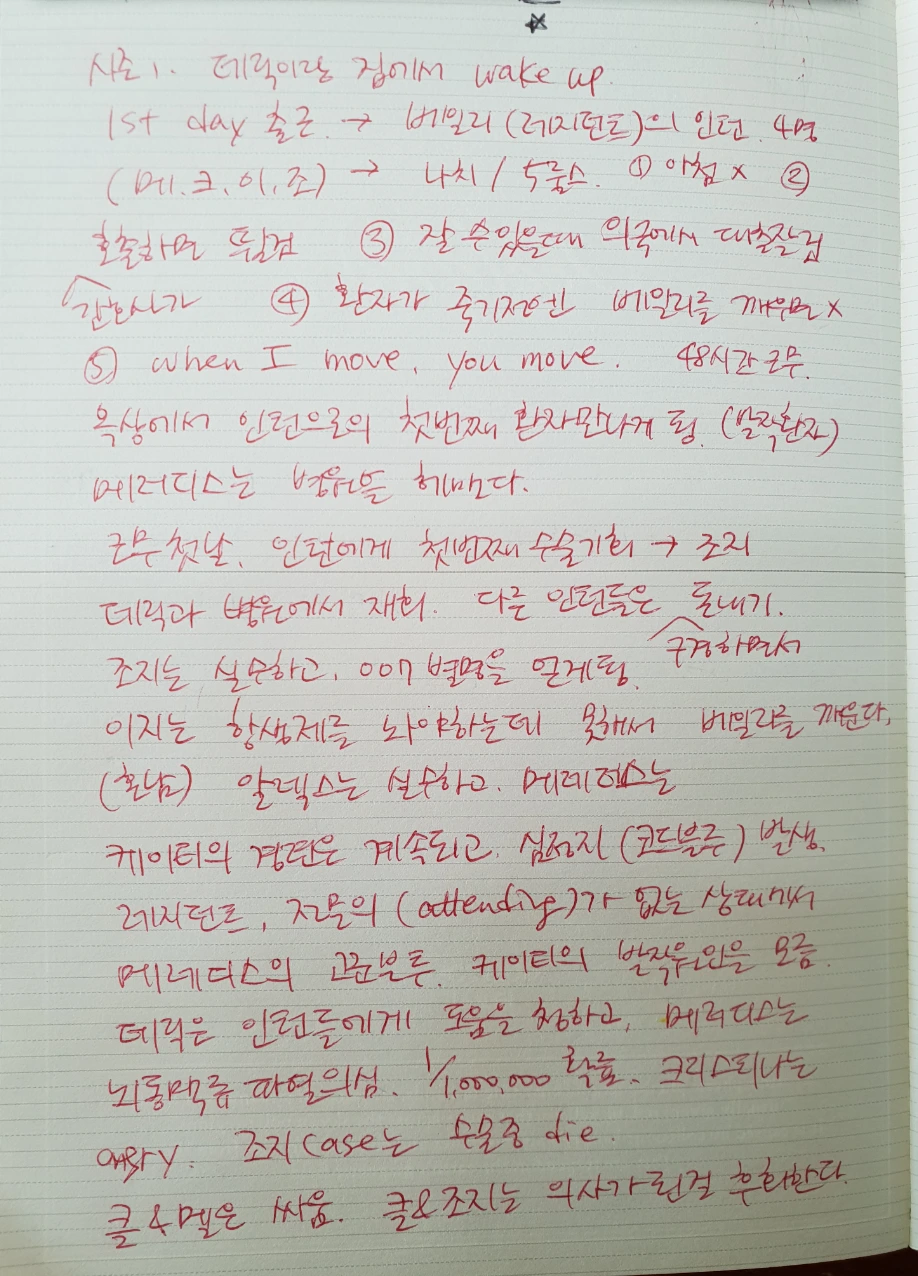 시즌1. 데릭이랑 집에서 wake up.
1st day 출근 → 베일리(레지던트)의 인턴 4명
(메.크.이.조) → 나치 / 5룰스. ① 아첨 x ②
호출하면 뛸것 ③ 잘 수 있을때 의국에서
간호사가 ④ 환자가 죽기전엔 베일리를 깨우면 x
⑤ when I move, you move. 48시간 근무.
옥상에서 인턴으로의 첫번째 환자만나게 됨. (발작환자)
메러디스는 병원을 헤매다.
근무 첫날, 인턴에게 첫번째 수술기회 → 조지
데릭과 병원에서 재회. 다른 인턴들은 돈내기.
구경하면서
조지는 실수하고, 007 별명을 얻게됨.
이지는 항생제를 놔야하는데 못해서 베일리를 깨운다,
(혼남) 알렉스는 실수하고. 메레디스는
케이티의 경련은 계속되고. 심정지 (코드블루) 발생.
레지던트, 전문의 (attending)가 없는 상태에서
메레디스의 고군분투. 케이티의 발작원인을 모름.
데릭은 인턴들에게 도움을 청하고, 메러디스는
뇌동맥류 파열의심. 1/1,000,000 확률. 크리스티나는
angry. 조지 case는 수술중 die.
클&멜은 싸움. 클&조지는 의사가 된걸 후회한다.